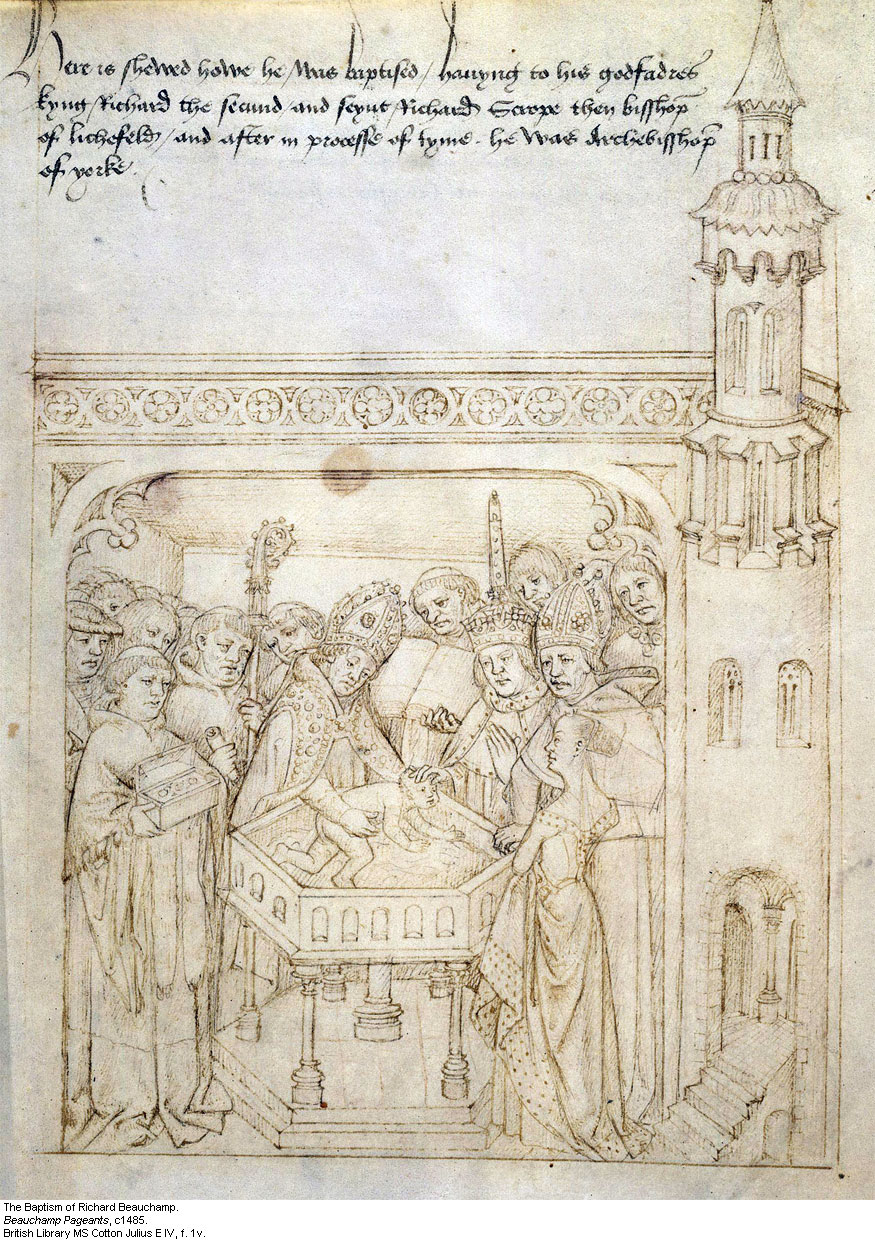 Here is shewed howe he was baptised / hauyng to his godfadres
kyng Richard the secund and seynt Richard Scrope then bisshop
of lichefeld / and after in processe of tyme he was Archebisshop
of yorke
The Baptism of Richard Beauchamp.
Beauchamp Pageants, c1485.
British Library MS Cotton Julius E IV, f. 1v.